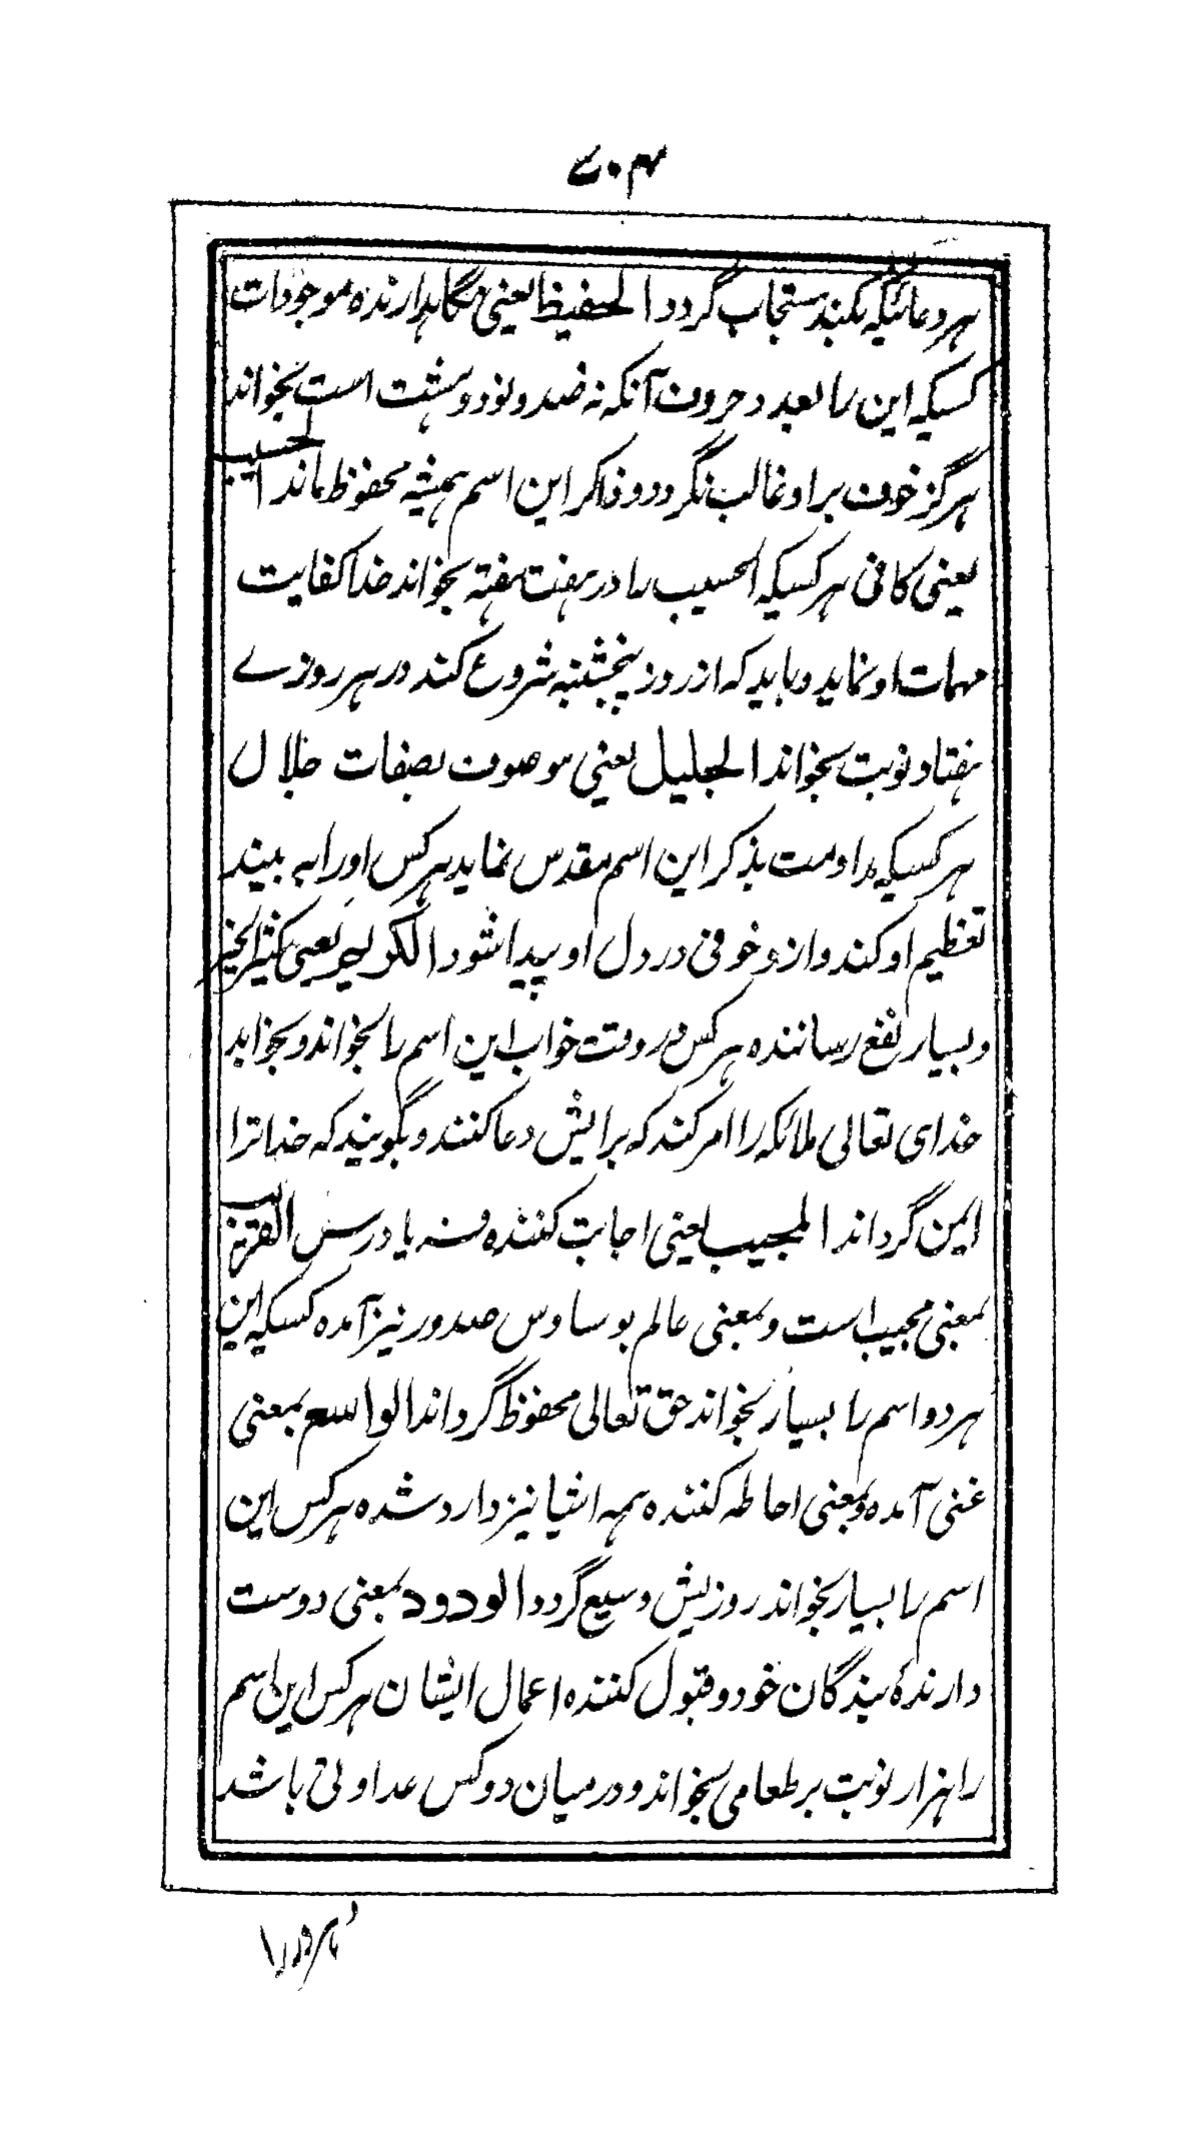 هر دعائیکه بکند مستجاب گردد الحفیظ یعنی نگاہدارندہ موجودات
کسیکه این را بعدد حروف آنکه نہ صد و نود و ہشت است بخواند
ہرگز خوف بر او غالب نگردد و ذاکر این اسم ہمیشه محفوظ ماند الحسیب
یعنی کافی ہر کسیکه الحسیب را در ہفت ہفته بخواند خدا کفایت
مہمات او نماید و باید که از روز پنجشنبه شروع کند در ہر روزے
ہفتاد نوبت بخواند الجلیل یعنی موصوف بصفات جلال
ہر کسیکه مداومت بذکر این اسم مقدس نماید ہر کس اورا بہ بیند
تعظیم او کند و ازو خوفی در دل او پیدا شود الکریم یعنی کثیر الخیر
و بسیار نفع رسانندہ ہر کس در وقت خواب این اسم را بخواند و بخوابد
خدای تعالی ملائکه را امر کند که برایش دعا کنند و بگویند که خدا ترا
ایمن گرداند المجیب یعنی اجابت کنندہ فریادرس القریب
بمعنی مجیب است و بمعنی عالم بوساوس صدور نیز آمدہ کسیکه این
ہر دو اسم را بسیار بخواند حق تعالی محفوظ گرداند الواسع بمعنی
غنی آمدہ و بمعنی احاطه کنندہ ہمہ اشیا نیز وارد شدہ ہر کس این
اسم را بسیار بخواند روزیش وسیع گردد الودود بمعنی دوست
دارندۂ بندگان خود و قبول کنندہ اعمال ایشان ہر کس این اسم
را ہزار نوبت بر طعامی بخواند و درمیان دو کس عداوتی باشد